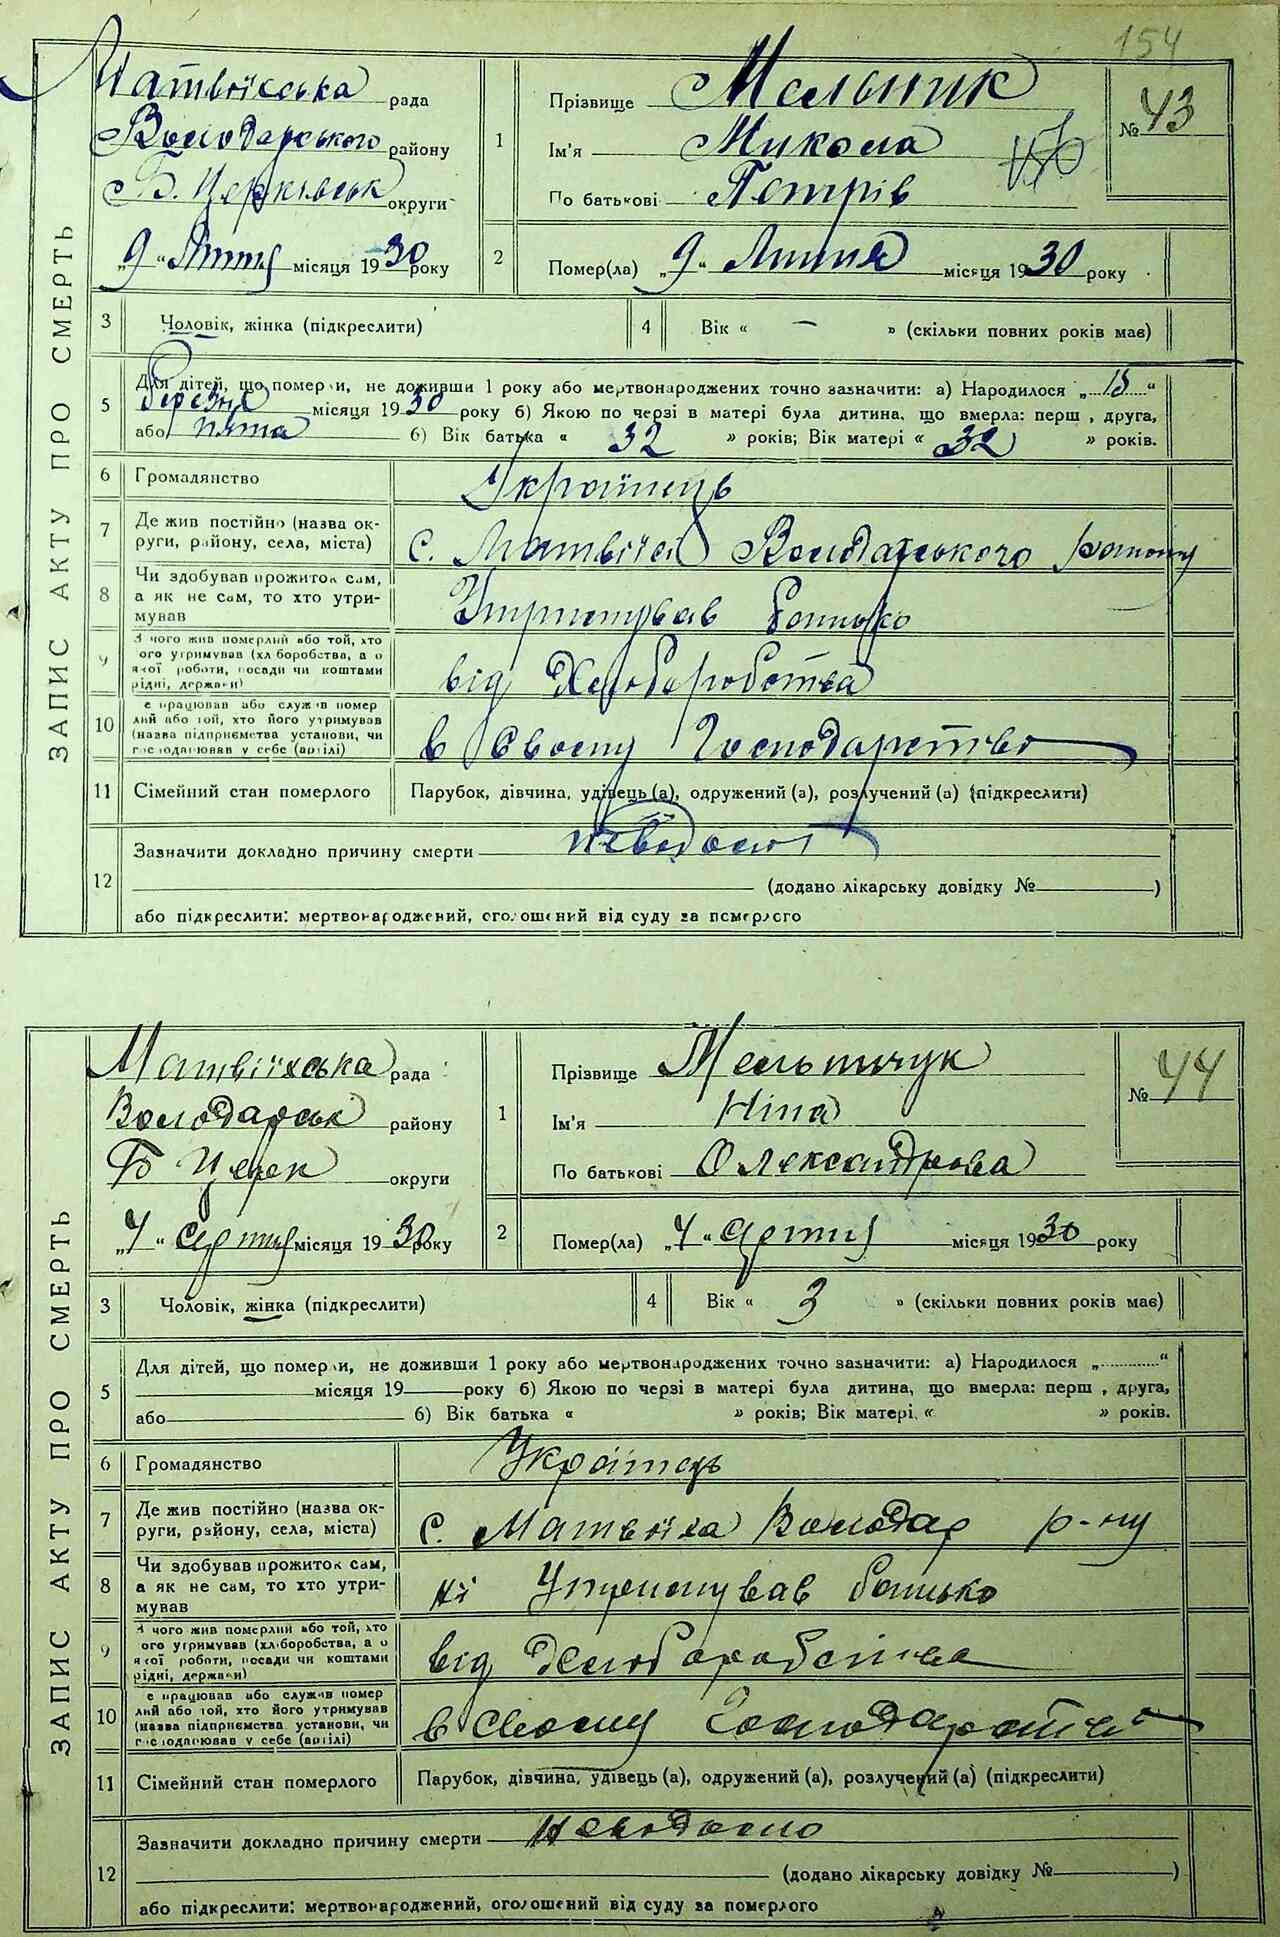 154
ЗАПИС АКТУ ПРО СМЕРТЬ
Матвіївська рада
Володарського району
Б. Церківськ округи
„9“ Липня місяця 1930 року
1
Прізвище Мельник
Ім'я Микола
По батькові Петрів
№ 43
2
Помер(ла) „9“ Липня місяця 1930 року
3 Чоловік, жінка (підкреслити)
4 Вік « — » (скільки повних років має)
5 Для дітей, що померли, не доживши 1 року або мертвонароджених точно зазначити: а) Народилося „15“
березня місяця 1930 року б) Якою по черзі в матері була дитина, що вмерла: перш , друга,
або пята б) Вік батька « 32 » років; Вік матері « 32 » років.
6 Громадянство Українець
7 Де жив постійно (назва ок-
руги, району, села, міста) с. Матвіїха Володарського району
8 Чи здобував прожиток сам,
а як не сам, то хто утри-
мував Утримував батько
9 З чого жив померлий або той, хто
ого утримував (хліборобства, а о
якої роботи, посади чи коштами
рідні, держави) від Хліборобства
10 е працював або служив помер
лий або той, хто його утримував
(назва підприємства установи, чи
господарював у себе (артілі) в своєму Господарстві
11 Сімейний стан померлого Парубок, дівчина, удівець (а), одружений (а), розлучений (а) (підкреслити)
12 Зазначити докладно причину смерти невідомо
(додано лікарську довідку № )
або підкреслити: мертвонароджений, оголошений від суду за померлого
ЗАПИС АКТУ ПРО СМЕРТЬ
Матвіїхська рада
Володарськ району
Б Церк округи
„4“ серпня місяця 1930 року
1
Прізвище Мельничук
Ім'я Ніна
По батькові Олександрова
№ 44
2
Помер(ла) „4“ серпня місяця 1930 року
3 Чоловік, жінка (підкреслити)
4 Вік « 3 » (скільки повних років має)
5 Для дітей, що померли, не доживши 1 року або мертвонароджених точно зазначити: а) Народилося „ “
місяця 19 року б) Якою по черзі в матері була дитина, що вмерла: перш , друга,
або б) Вік батька « » років; Вік матері « » років.
6 Громадянство Українець
7 Де жив постійно (назва ок-
руги, району, села, міста) с. Матвіїха Володар р-ну
8 Чи здобував прожиток сам,
а як не сам, то хто утри-
мував ні Утримував батько
9 З чого жив померлий або той, хто
ого утримував (хліборобства, а о
якої роботи, посади чи коштами
рідні, держави) від Хліборобства
10 е працював або служив помер
лий або той, хто його утримував
(назва підприємства установи, чи
господарював у себе (артілі) в своєму Господарстві
11 Сімейний стан померлого Парубок, дівчина, удівець (а), одружений (а), розлучений (а) (підкреслити)
12 Зазначити докладно причину смерти невідомо
(додано лікарську довідку № )
або підкреслити: мертвонароджений, оголошений від суду за померлого